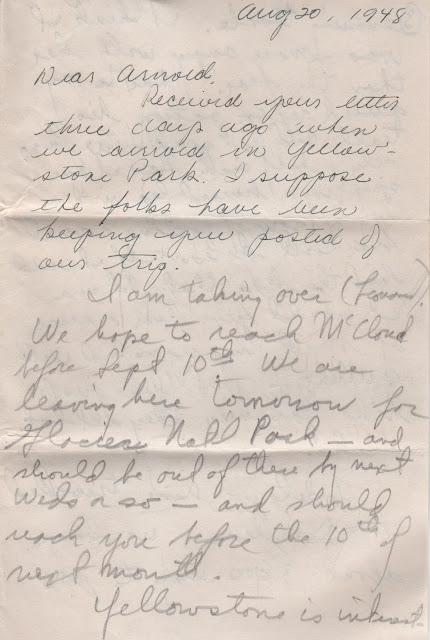 Aug 20, 1948
Dear Arnold,
Received your letter
three days ago when
we arrived in Yellow-
stone Park. I suppose
the folks have been
keeping you posted of
our trip.
I am taking over
We hope to reach McCloud
before Sept 10th. We are
leaving here tomorrow for
Glacier Natl Park – and
should be out of there by next
Weds or so – and should
reach you before the 10th of
next month.
Yellowstone is interest-